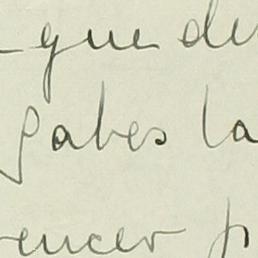 que de
Sabes la
encer p